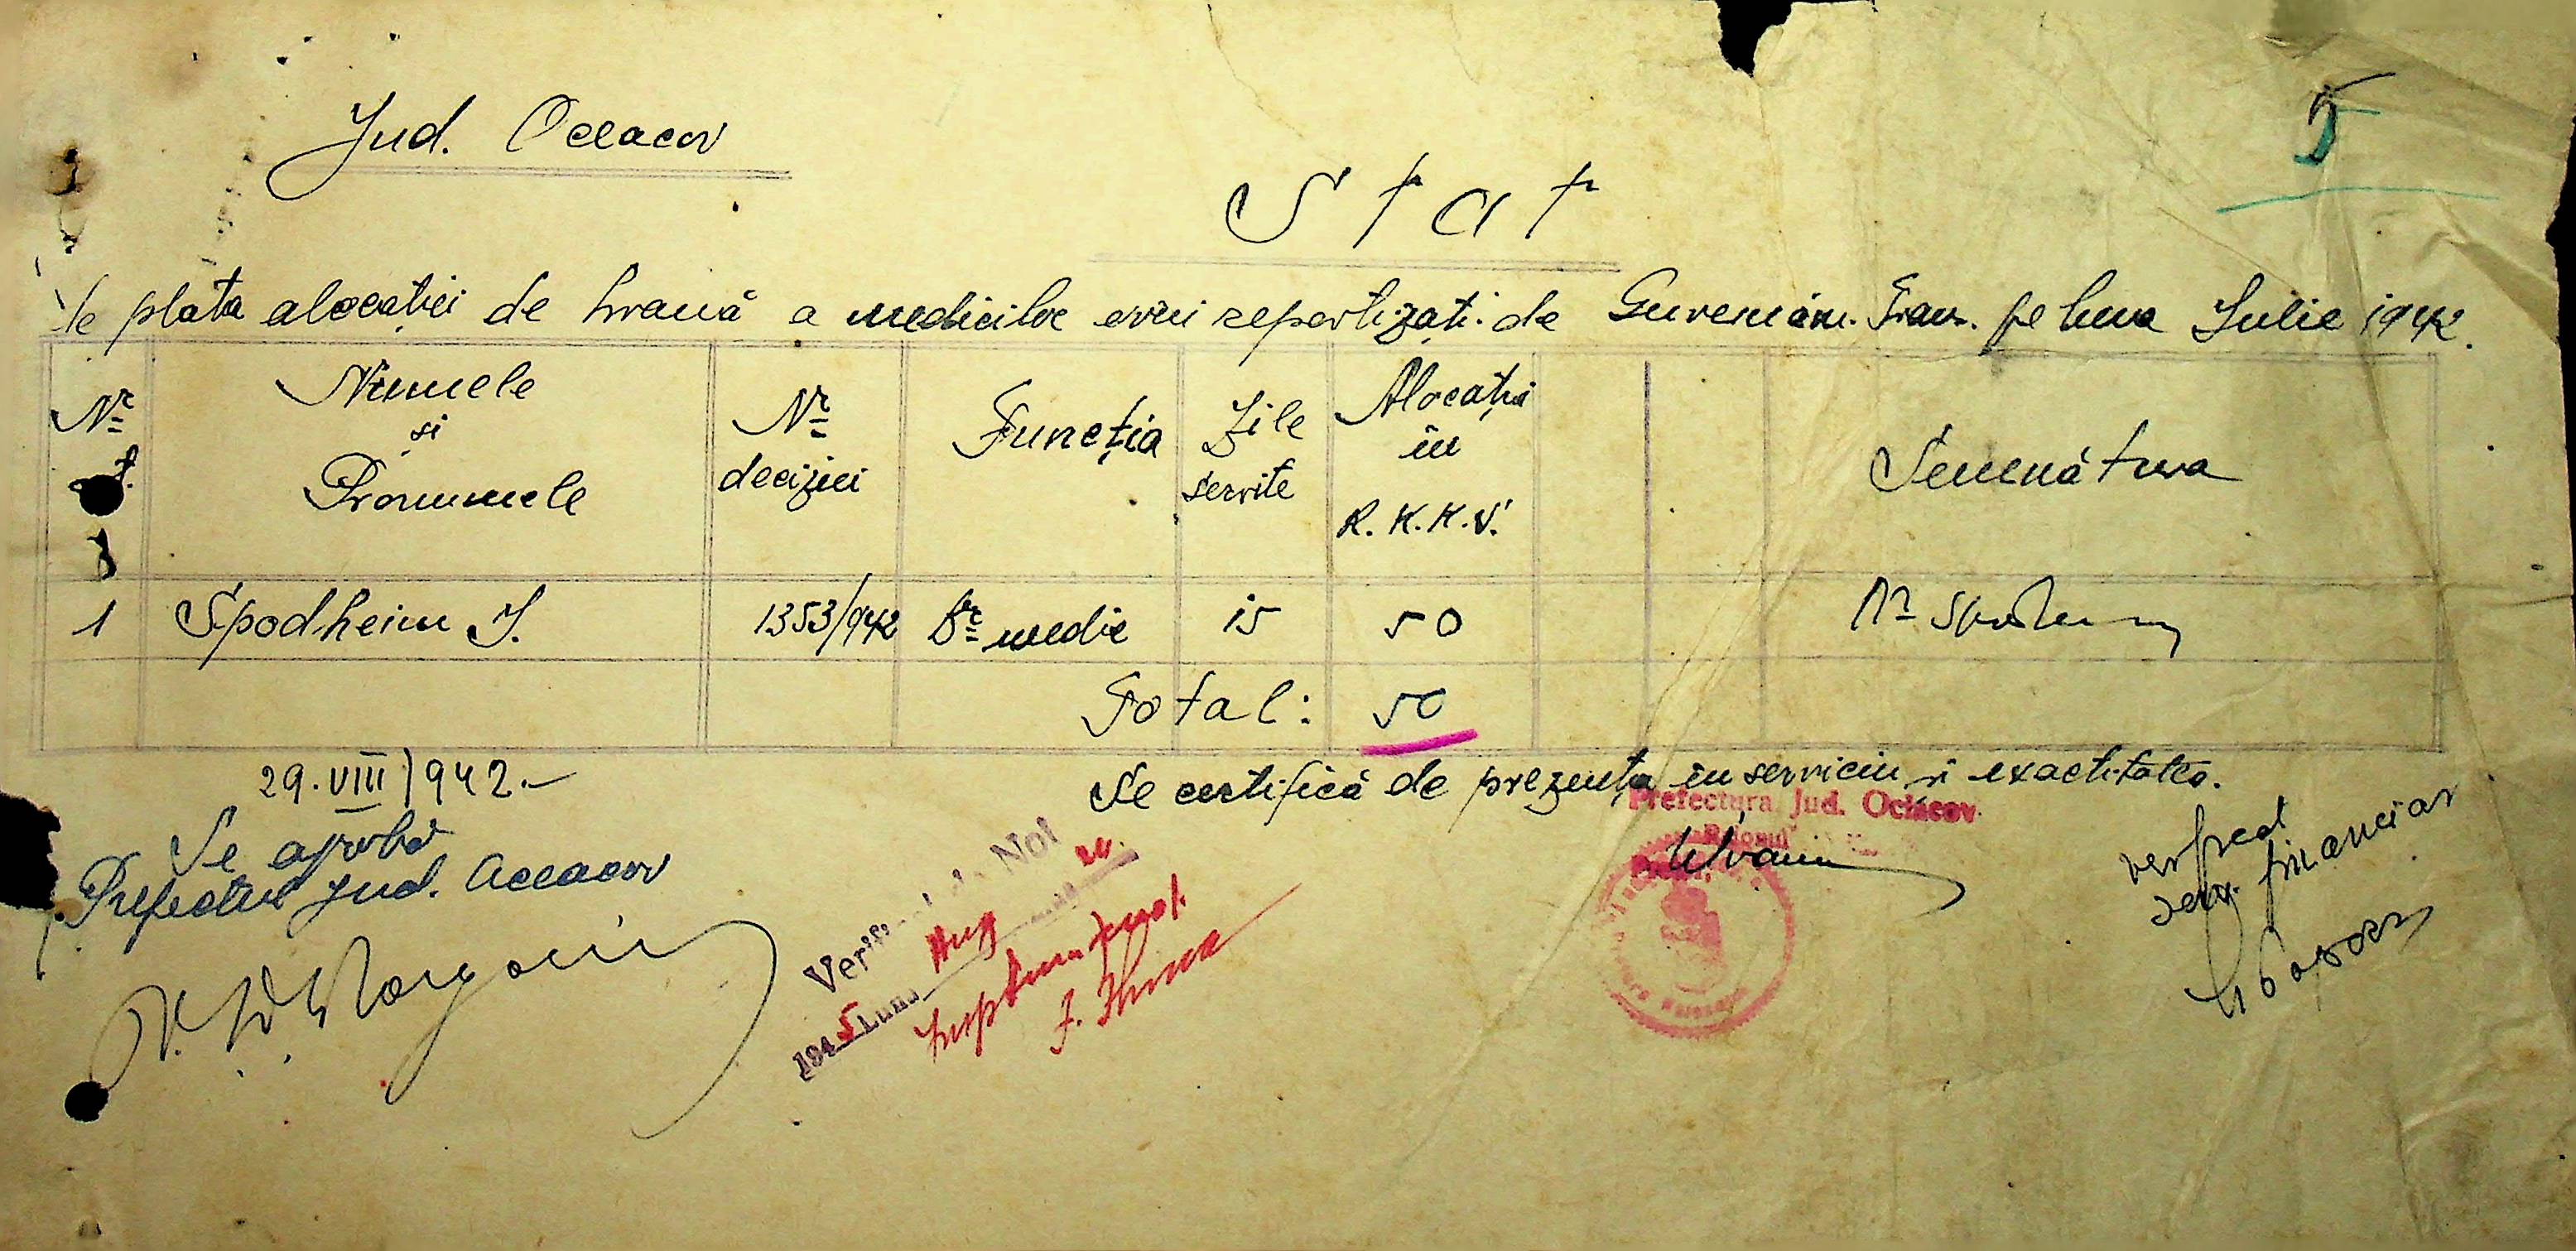 5
Jud. Oceacov
Stat
de plata alocației de hrană a medicilor evrei repartizați de Guvernăm. Tran. pe luna Iulie 1942.
Nr Numele și Pronumele Nr deciziei Funcția Zile servite Alocația în R.K.K.V. Semnătura
1 Spodheim I. 1353/942 Dr medic 15 50
Total: 50
29.VIII/942.-
Se certifică de prezența în serviciu și exactitatea.
Prefectura Jud. Oceacov
Se aprobă
Prefectul Jud. Oceacov
Verificat de Noi
Aug
1945 Luna
verificat
serv. financiar